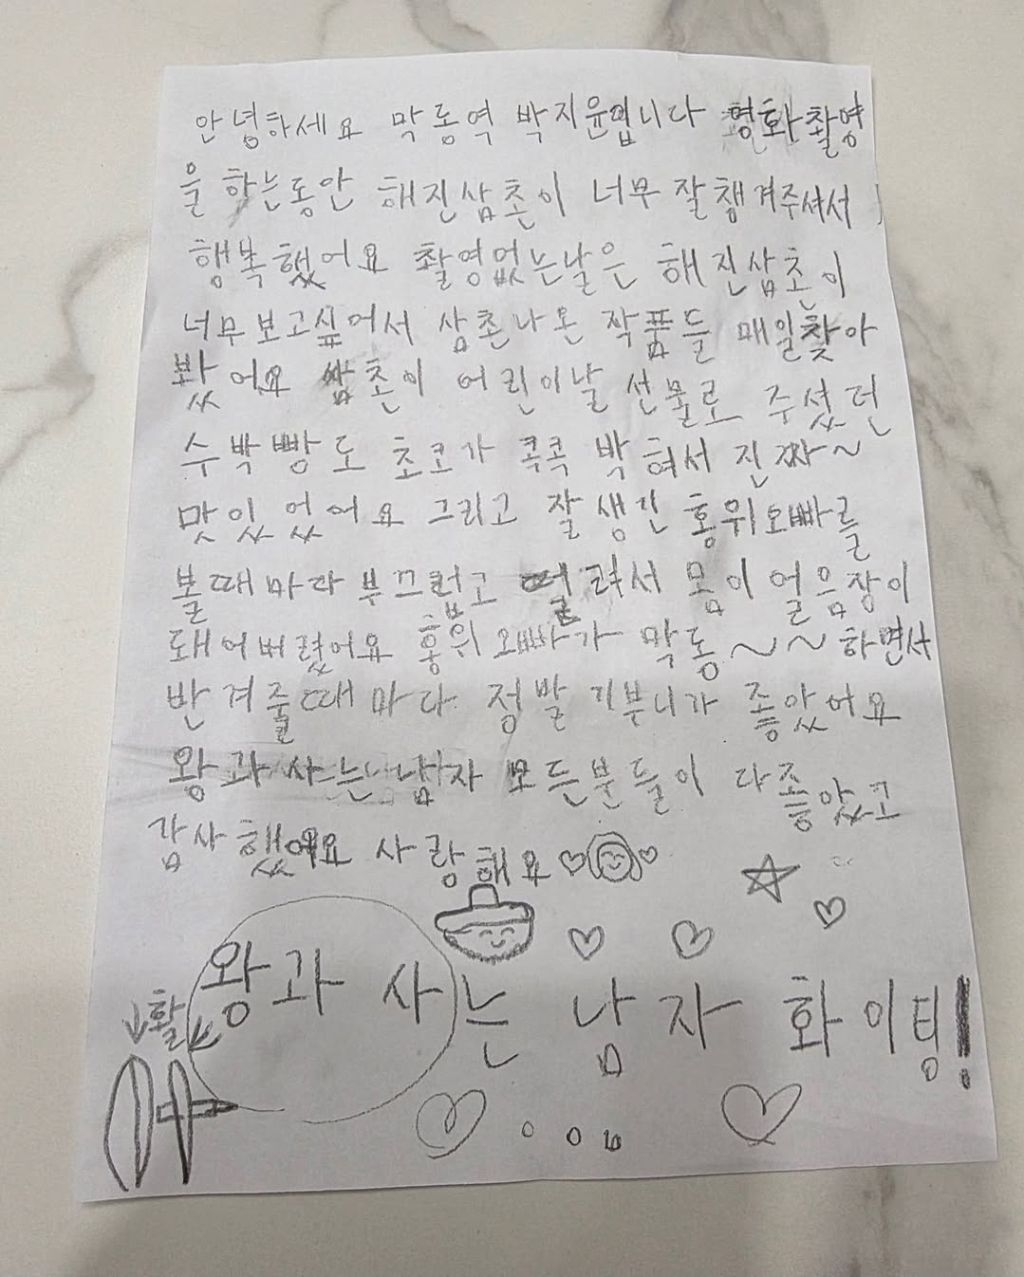 안녕하세요 막동역 박지윤입니다 영화촬영
을 하는동안 해진삼촌이 너무 잘챙겨주셔서
행복했어요 촬영없는날은 해진삼촌이
너무보고싶어서 삼촌나온 작품들 매일찾아
봤어요 삼촌이 어린이날 선물로 주셨던
수박빵도 초코가 콕콕 박혀서 진짜~
맛있었어요 그리고 잘생긴 홍위오빠를
볼때마다 부끄럽고 떨려서 몸이 얼음장이
돼어버렸어요 홍위오빠가 막동~~하면서
반겨줄때마다 정말 기부니가 좋았어요
왕과사는남자 모든분들이 다좋았고
감사했어요 사랑해요
왕과 사는 남자 화이팅!
활